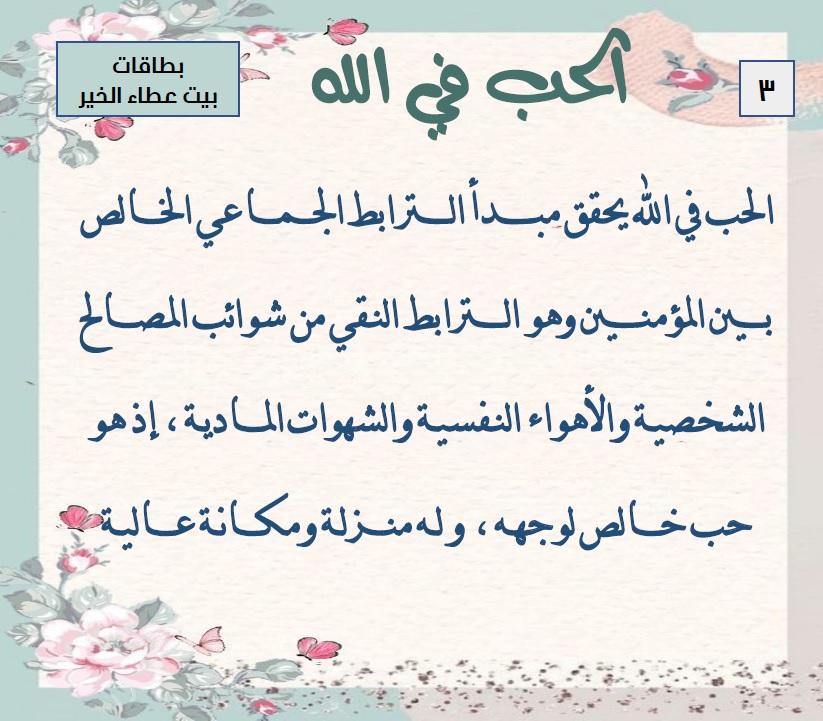 ٣
الحب في الله
بطاقات
بيت عطاء الخير
الحب في الله يحقق مبدأ الترابط الجماعي الخالص
بين المؤمنين وهو الترابط النقي من شوائب المصالح
الشخصية والأهواء النفسية والشهوات المادية ، إذ هو
حب خالص لوجهه ، وله منزلة ومكانة عالية